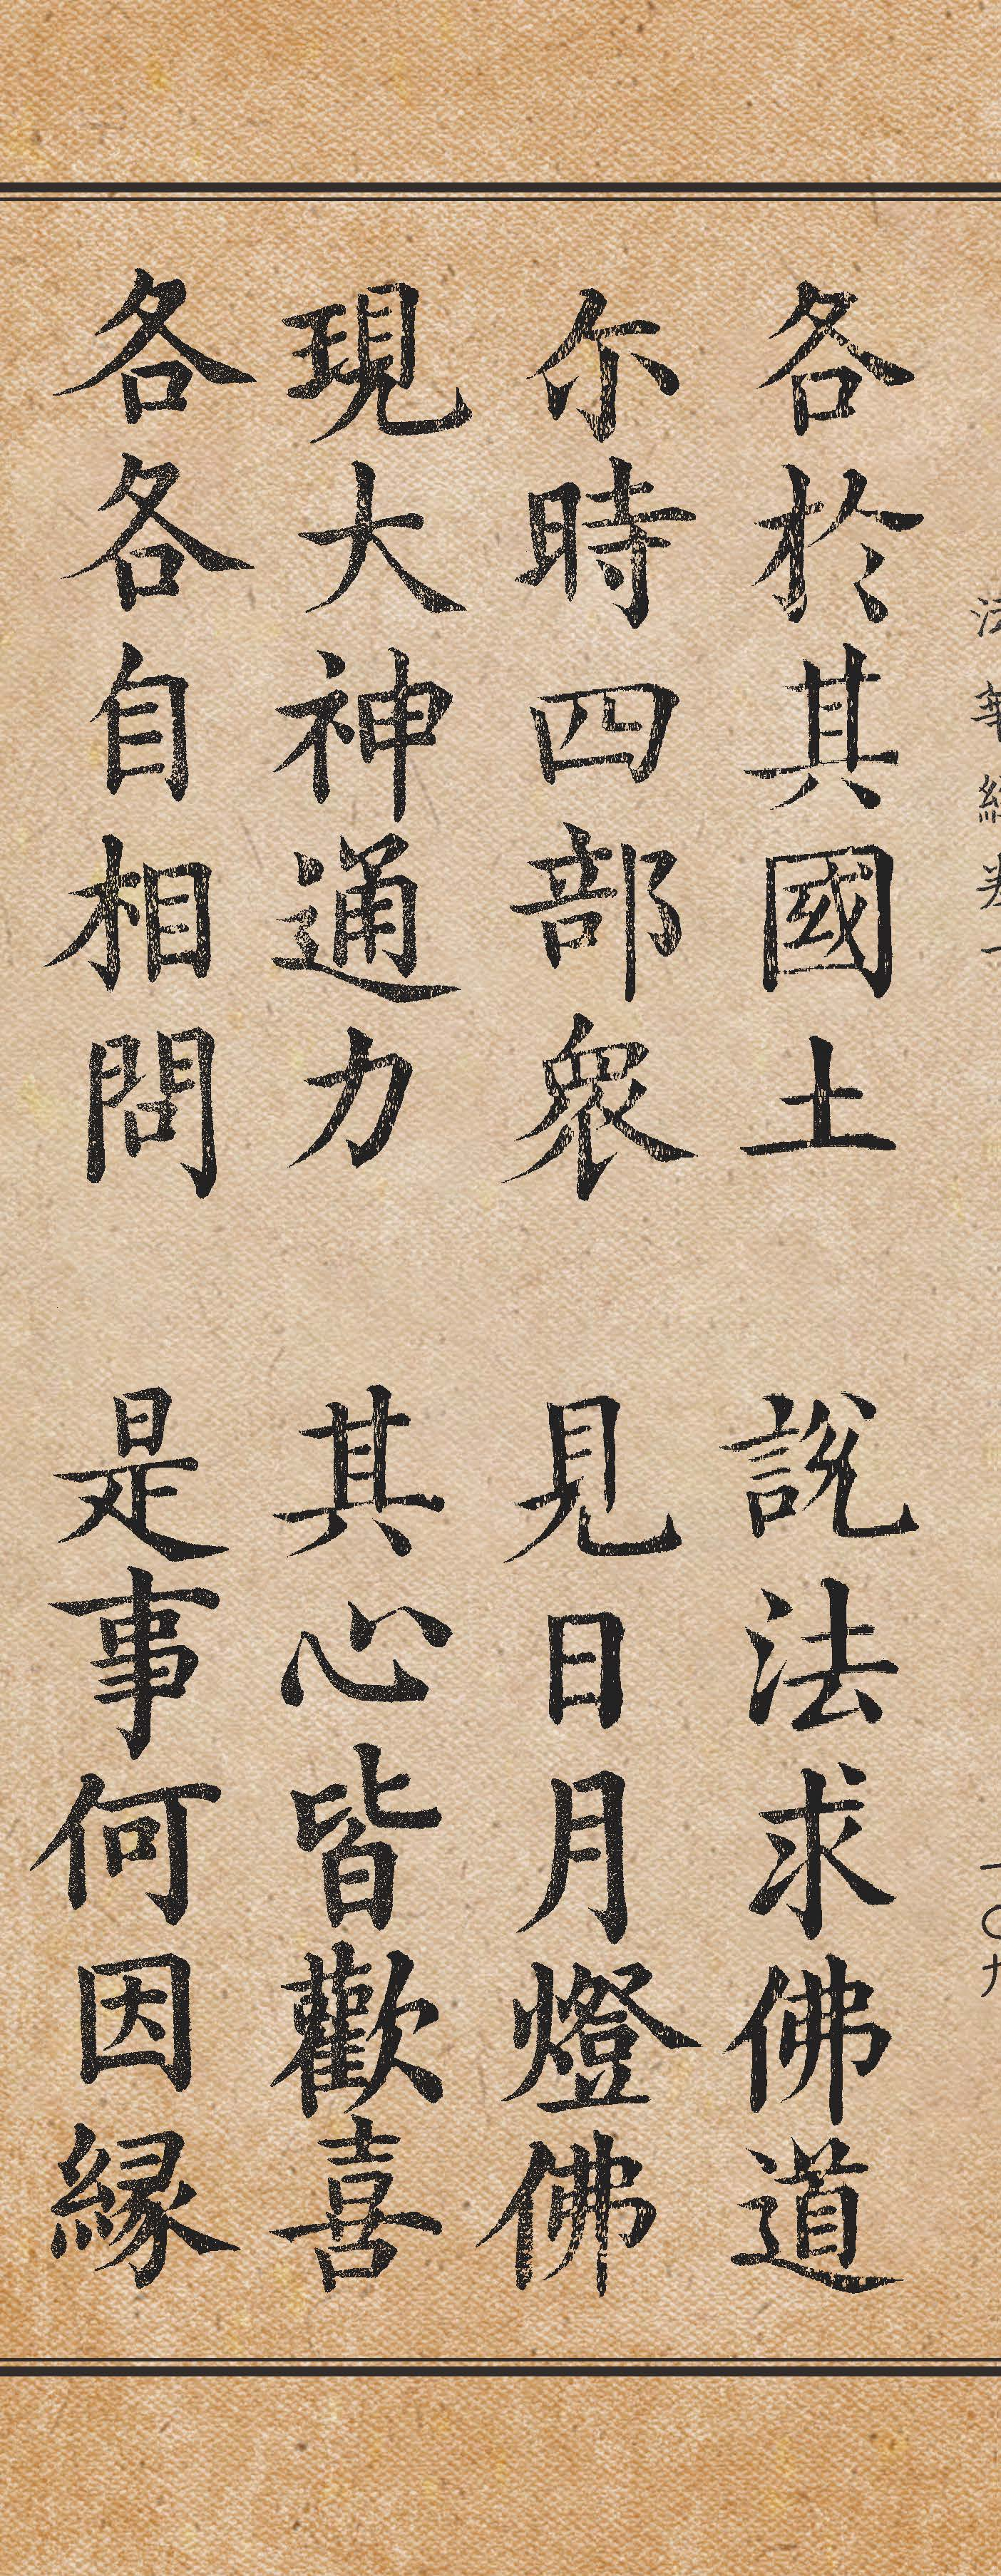 法華經卷一 一〇九
各於其國土 說法求佛道
尒時四部衆 見日月燈佛
現大神通力 其心皆歡喜
各各自相問 是事何因緣